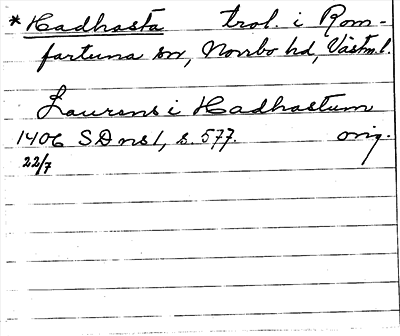 * Hadhasta trol. i Rom-
fartuna sn, Norrbo hd, Västml.
Laurens i Hadhastum
1406 SDns 1, s. 577. orig.
22/7